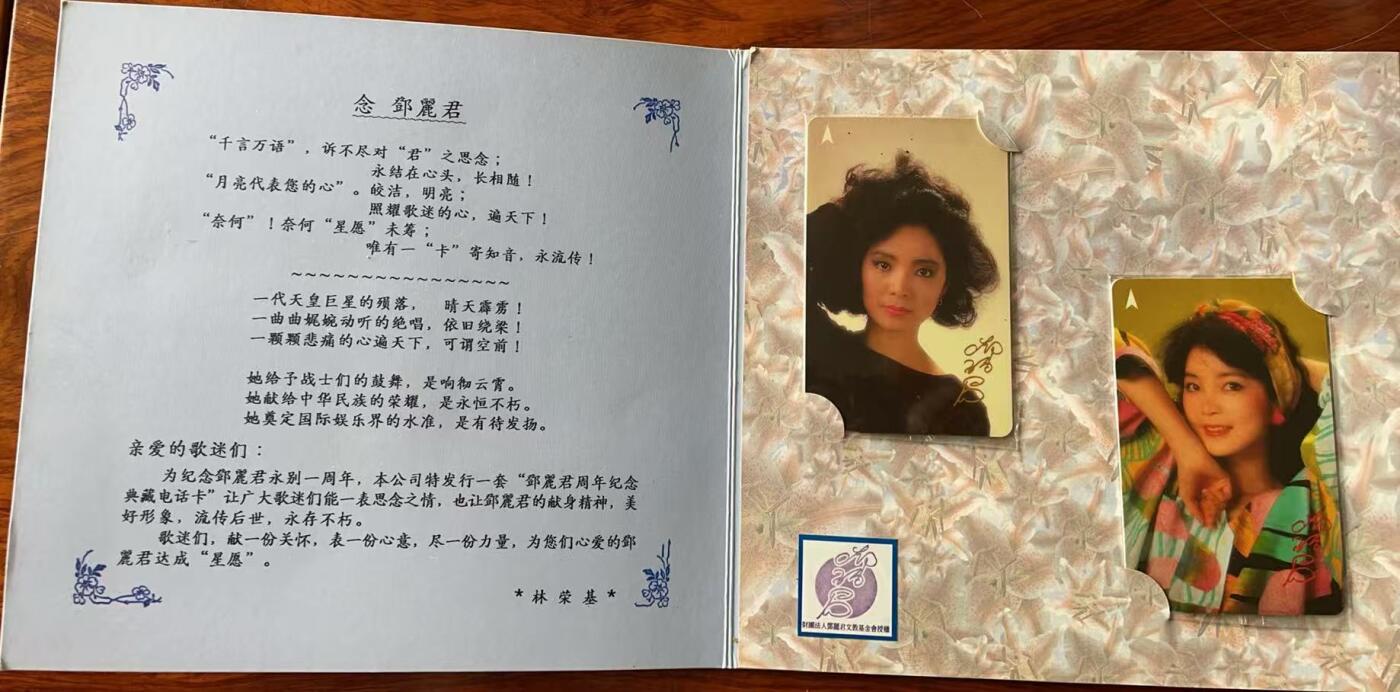 念 鄧麗君
“千言万语”，诉不尽对“君”之思念；
永结在心头，长相随！
“月亮代表您的心”。皎洁，明亮；
照耀歌迷的心，遍天下！
“奈何”！奈何“星愿”未筹；
唯有一“卡”寄知音，永流传！
～～～～～～～～～～～～～～～～
一代天皇巨星的殒落， 晴天霹雳！
一曲曲娓婉动听的绝唱，依旧绕梁！
一颗颗悲痛的心遍天下，可谓空前！
她给予战士们的鼓舞，是响彻云霄。
她献给中华民族的荣耀，是永恒不朽。
她奠定国际娱乐界的水准，是有待发扬。
亲爱的歌迷们：
为纪念鄧麗君永别一周年，本公司特发行一套“鄧麗君周年纪念
典藏电话卡”让广大歌迷们能一表思念之情，也让鄧麗君的献身精神，美
好形象，流传后世，永存不朽。
歌迷们，献一份关怀，表一份心意，尽一份力量，为您们心爱的鄧
麗君达成“星愿”。
*林荣基*
鄧麗君
鄧麗君
鄧麗君
財團法人鄧麗君文教基金會授權